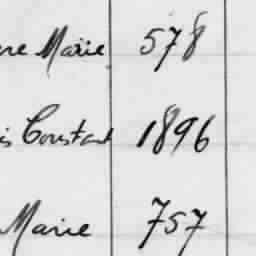 re Marie 578
is Constant 1896
Marie 757